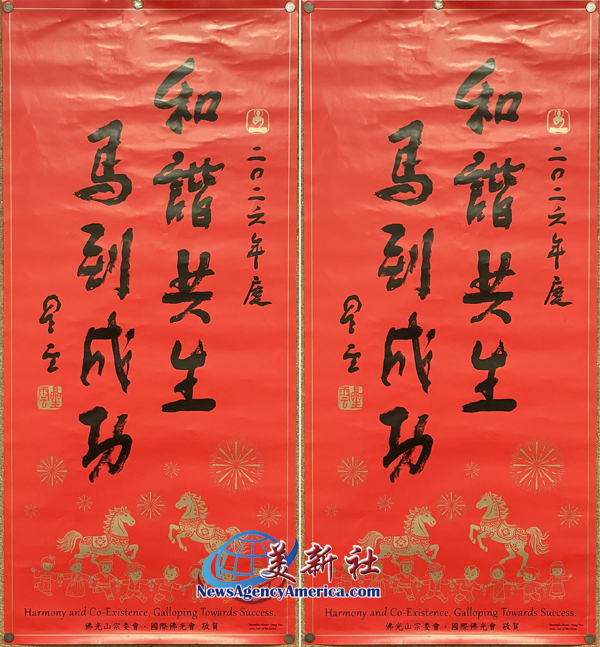 二〇二六年度
和諧共生
馬到成功
星云
星雲
Harmony and Co-Existence, Galloping Towards Success.
佛光山宗委會・國際佛光會 敬賀
二〇二六年度
和諧共生
馬到成功
星云
星雲
Harmony and Co-Existence, Galloping Towards Success.
佛光山宗委會・國際佛光會 敬賀
美新社
NewsAgencyAmerica.com